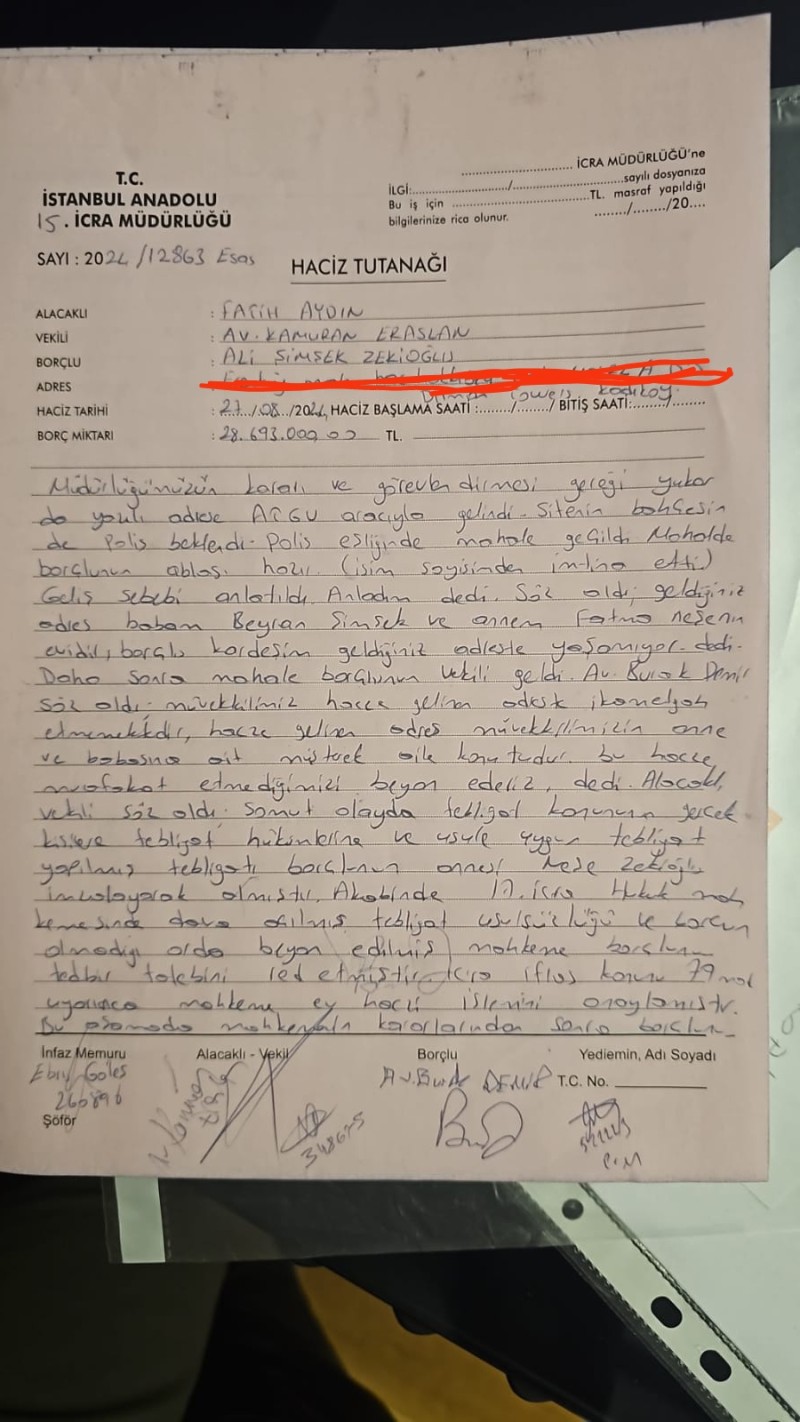 T.C.
İSTANBUL ANADOLU
15. İCRA MÜDÜRLÜĞÜ
SAYI : 2024/12863 Esas
.......................... İCRA MÜDÜRLÜĞÜ'ne
İLGİ:......................../............................sayılı dosyanıza
Bu iş için ...................................TL. masraf yapıldığı
bilgilerinize rica olunur.
......../......../20....
HACİZ TUTANAĞI
ALACAKLI : FATİH AYDIN
VEKİLİ : AV. KAMURAN ERASLAN
BORÇLU : ALİ ŞİMŞEK ZEKİOĞLU
ADRES : Kadıköy
HACİZ TARİHİ : 27/08/2024 HACİZ BAŞLAMA SAATİ :......../......../ BİTİŞ SAATİ:......../........
BORÇ MİKTARI : 28.693.000,00 TL.
Müdürlüğümüzün kararı ve görevlendirmesi gereği yukar
da yazılı adrese aracıyla gelindi. Sitenin bahçesin
de Polis beklendi. Polis eşliğinde mahale geçildi Mahalde
borçlunun ablası hazır. (isim soyisinden imtina etti)
Geliş sebebi anlatıldı. Anladım dedi. Söz aldı; geldiğiniz
adres babam Beyran Şimşek ve annem Fatma Neşenin
evidir, borçlu kardeşim geldiğiniz adreste yaşamıyor. dedi.
Daha sonra mahale borçlunun vekili geldi. Av. Burak Demir
söz aldı. müvekkilimiz hacze gelinen adreste ikamet
etmemektedir, hacze gelinen adres müvekkilimizin anne
ve babasına ait müşterek aile konutudur. bu hacze
muvafakat etmediğimizi beyan ederiz, dedi. Alacaklı
vekili söz aldı. Somut olayda tebligat kanununun gerçek
kişilere tebligat hükümlerine ve usule uygun tebligat
yapılmış tebligatı borçlunun annesi Neşe Zekioğlu
imzalayarak almıştır. Akabinde 17. icra Hukuk mah
kemesinde dava açılmış tebligat usulsüzlüğü ve borcun
olmadığı orda beyan edilmiş, mahkeme borçlunun
tedbir talebini red etmiştir. icra iflas kanunu 79 mad
uyarınca mahkeme ev haczi işlemini onaylamıştır.
Bu aşamada mahkemenin kararlarından sonra borçlun
İnfaz Memuru
Alacaklı - Vekil
Borçlu
Yediemin, Adı Soyadı
266896
Av. Burak DEMİR
T.C. No.
Şöför
348675
P.M